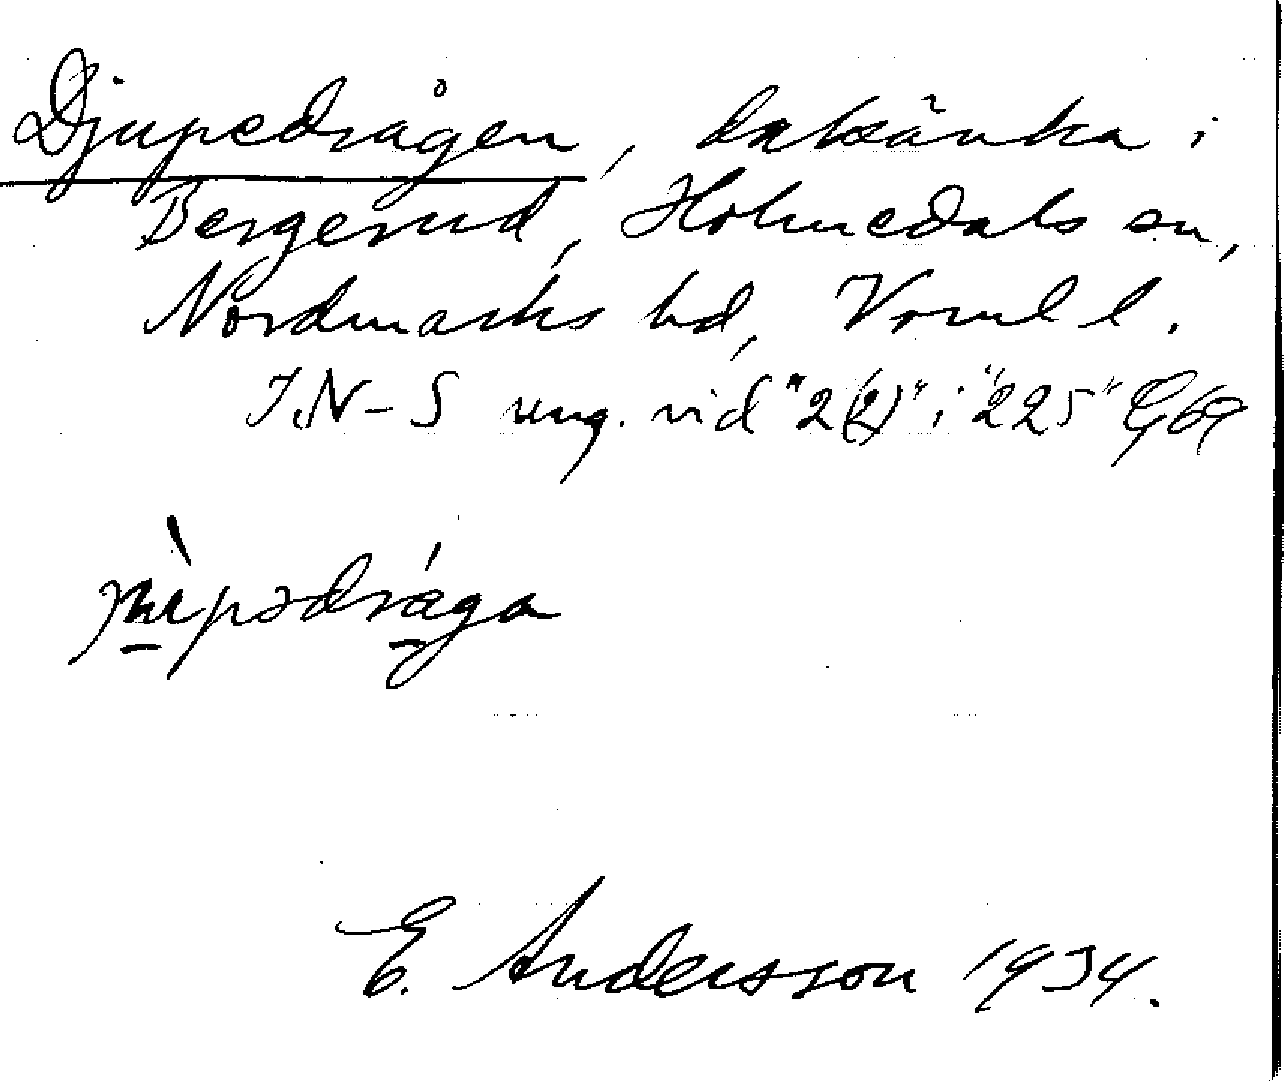 Djupedrågen, dalsänka i
Bergerud, Holmedals sn,
Nordmarks hd, Vrml l.
I N–S ung. vid "2(2)" i "225" E69
E. Andersson 1934.